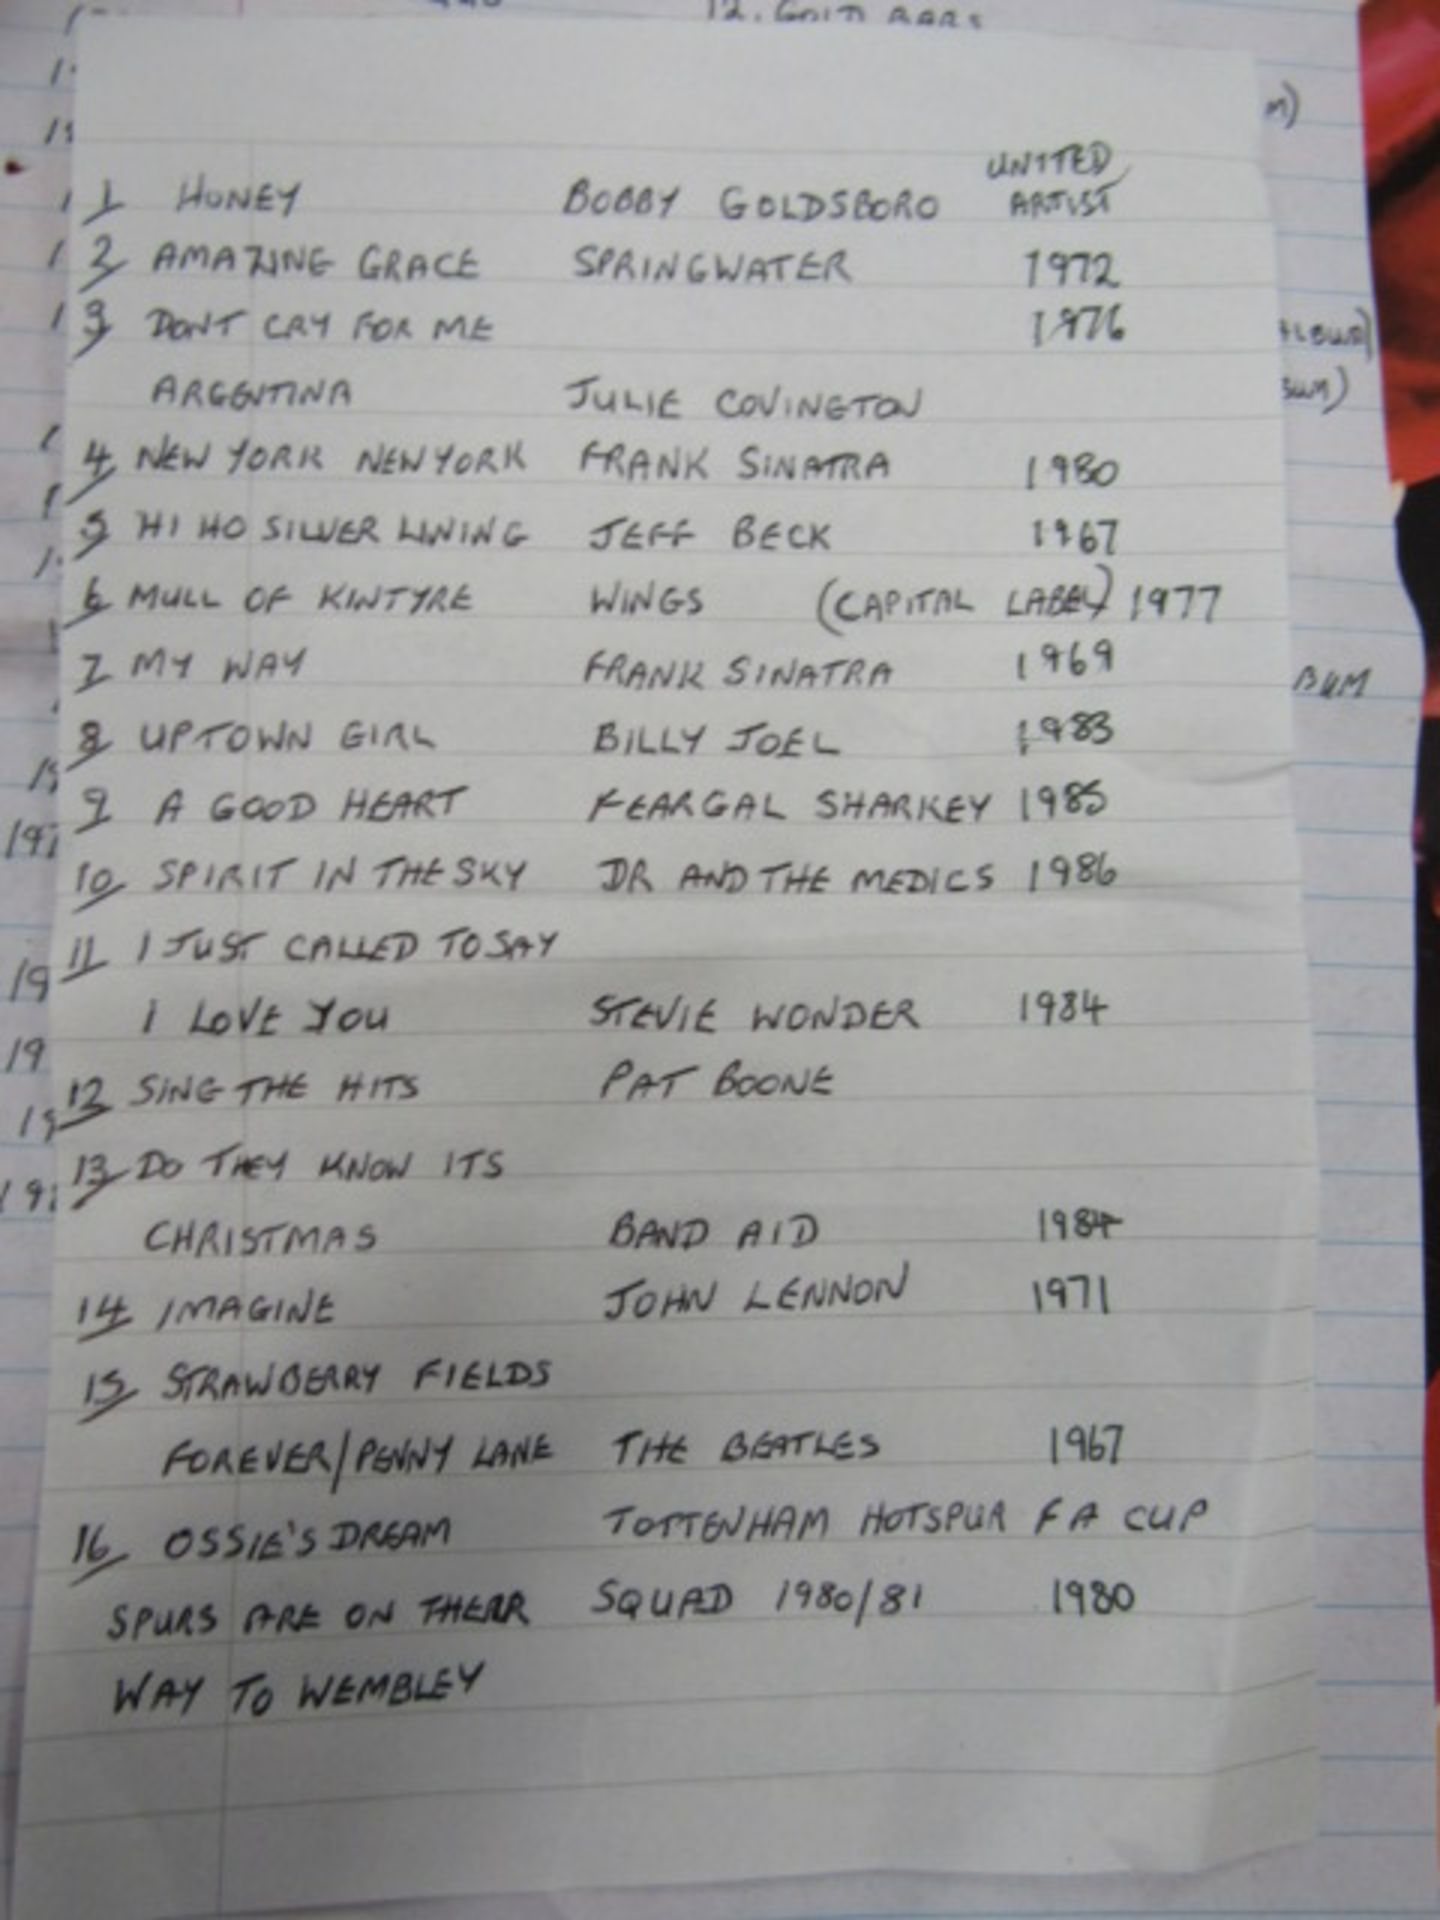 12. GOLD BARS
UNITED
1 HONEY BOBBY GOLDSBORO ARTIST
2 AMAZING GRACE SPRINGWATER 1972
3 DONT CRY FOR ME 1976
ARGENTINA JULIE COVINGTON
4 NEW YORK NEW YORK FRANK SINATRA 1980
5 HI HO SILVER LINING JEFF BECK 1967
6 MULL OF KINTYRE WINGS (CAPITAL LABEL) 1977
7 MY WAY FRANK SINATRA 1969
8 UPTOWN GIRL BILLY JOEL 1983
9 A GOOD HEART FEARGAL SHARKEY 1985
10 SPIRIT IN THE SKY DR AND THE MEDICS 1986
11 I JUST CALLED TO SAY
I LOVE YOU STEVIE WONDER 1984
12 SING THE HITS PAT BOONE
13 DO THEY KNOW ITS
CHRISTMAS BAND AID 1984
14 IMAGINE JOHN LENNON 1971
15 STRAWBERRY FIELDS
FOREVER/PENNY LANE THE BEATLES 1967
16 OSSIE'S DREAM TOTTENHAM HOTSPUR F A CUP
SPURS ARE ON THERR SQUAD 1980/81 1980
WAY TO WEMBLEY